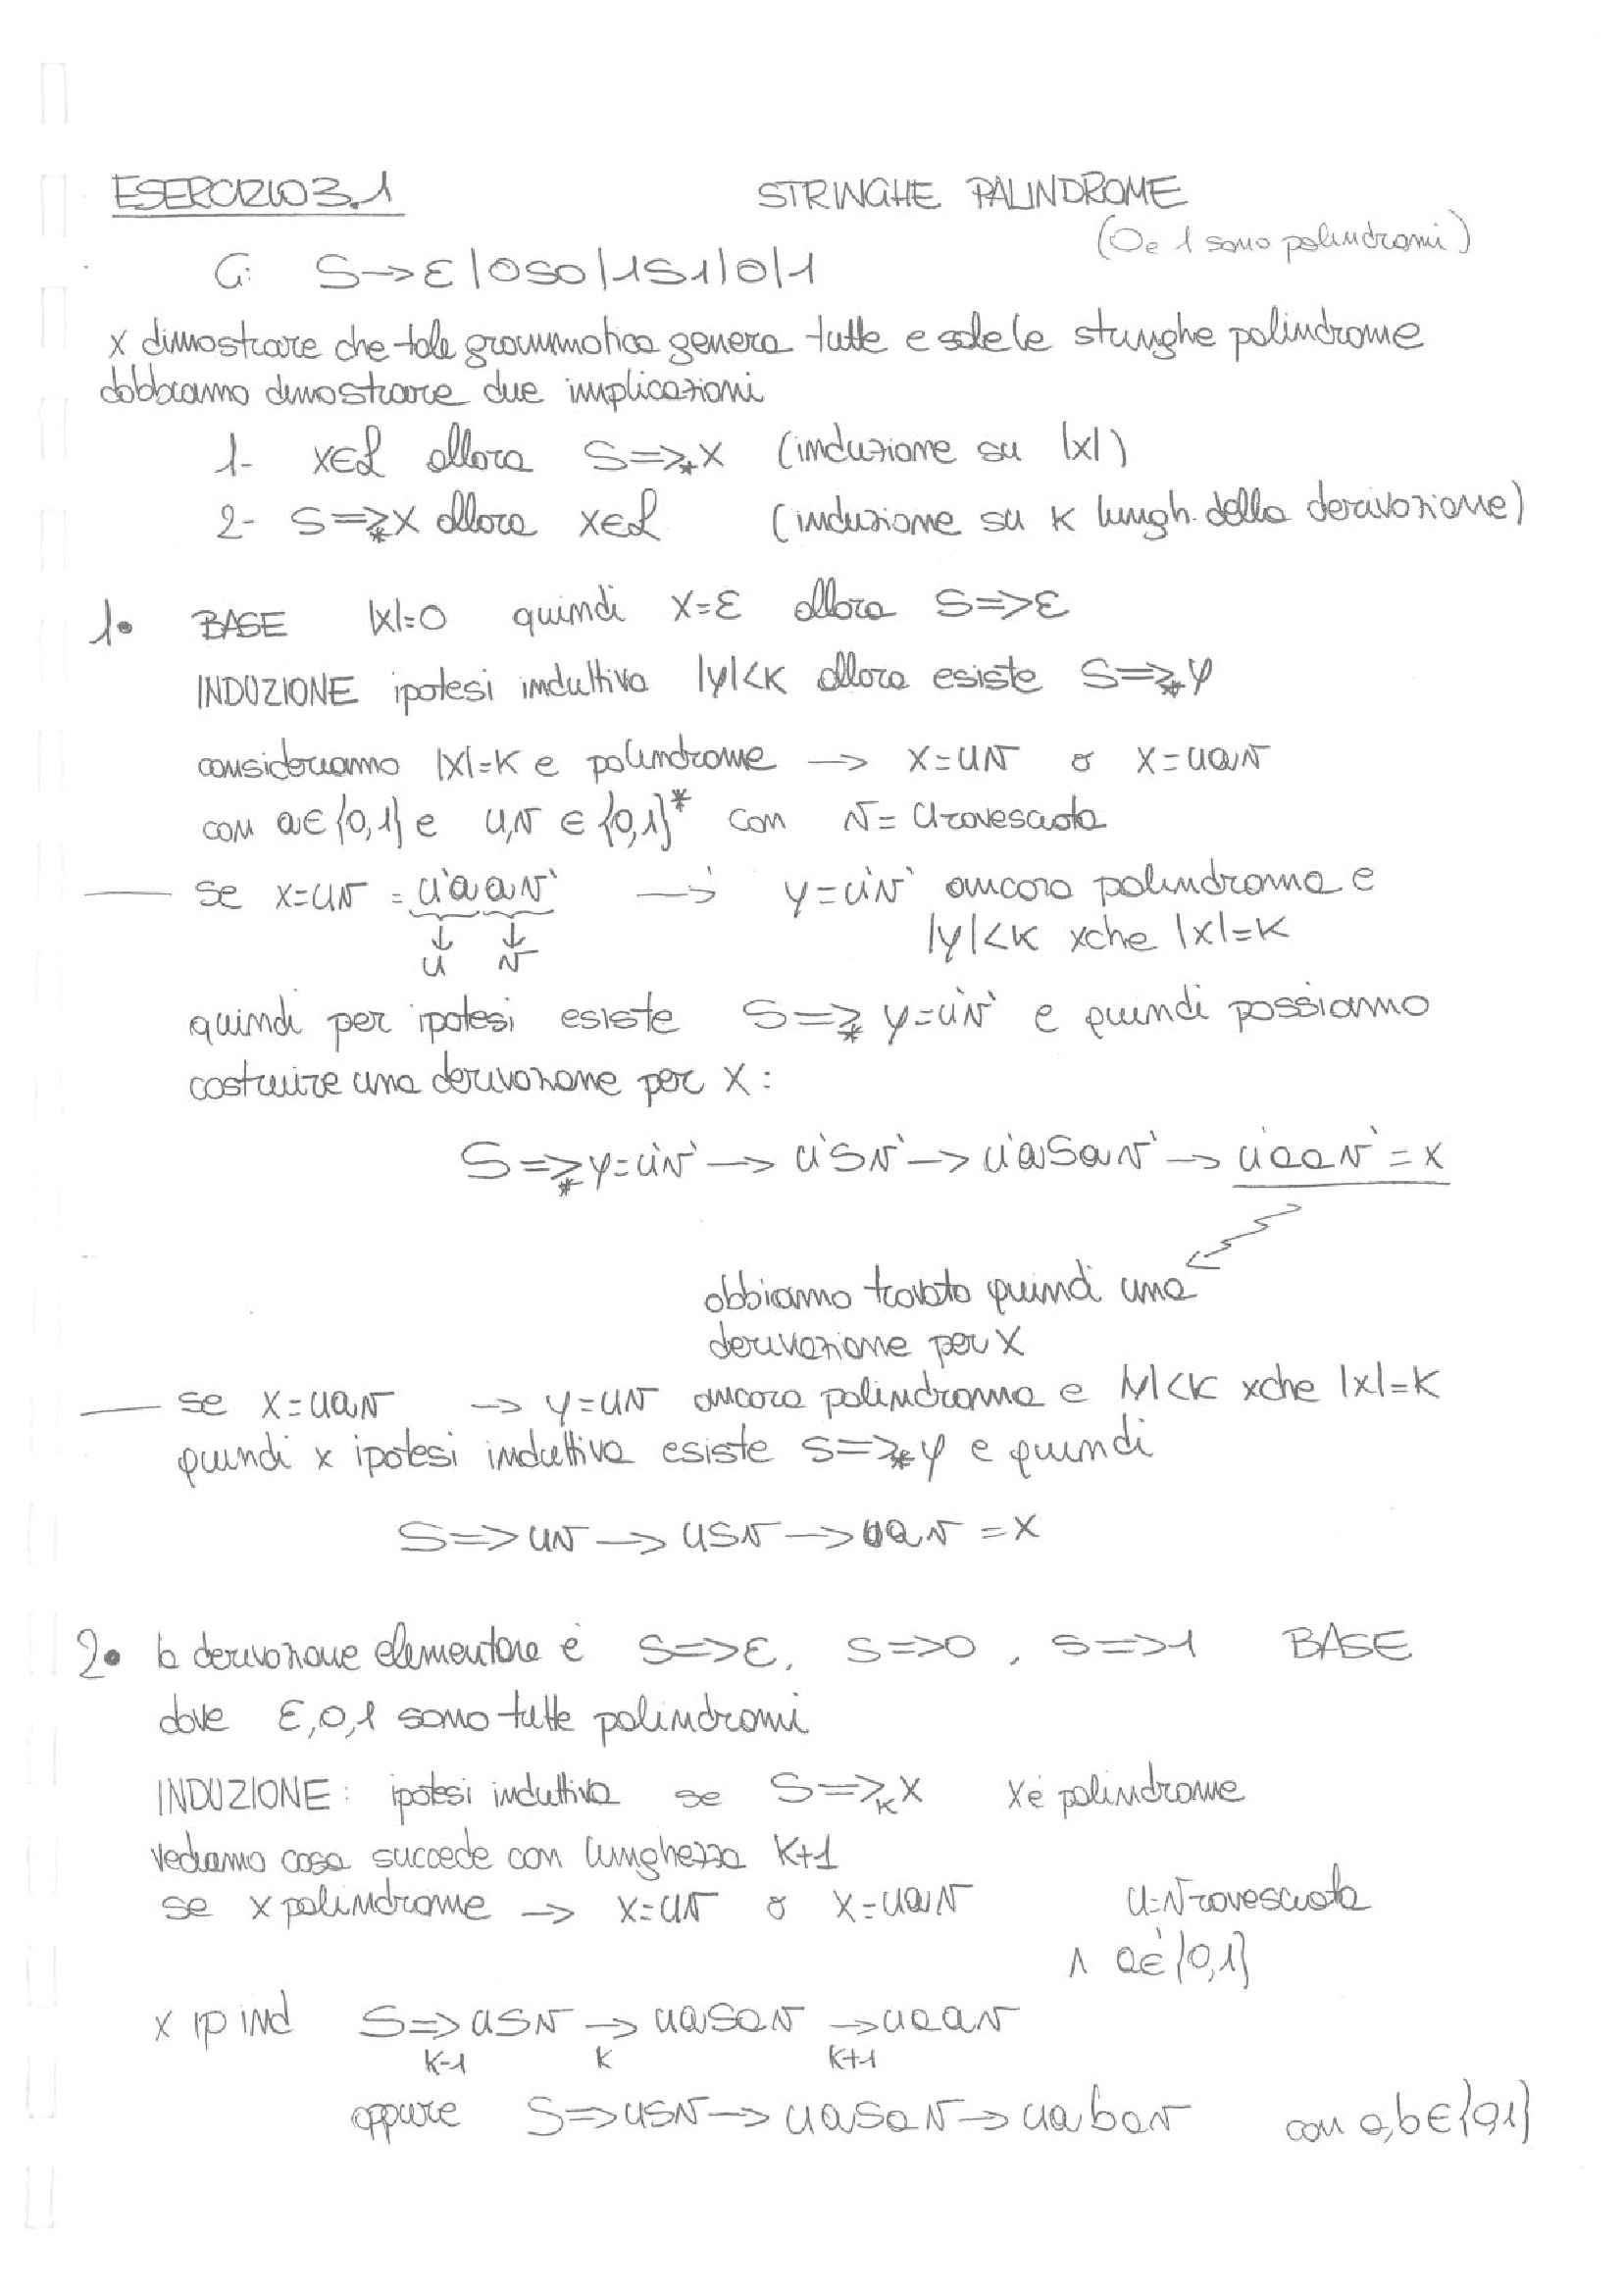 ESERCIZIO 3.1 STRINGHE PALINDROME
(0 e 1 sono palindromi)
G: S→ε|0S0|1S1|0|1
x dimostrare che tale grammatica genera tutte e sole le stringhe palindrome
dobbiamo dimostrare due implicazioni
1- x∈L allora S=>* x (induzione su |x|)
2- S=>* x allora x∈L (induzione su K lungh. della derivazione)
1• BASE |x|=0 quindi x=ε allora S=>ε
INDUZIONE ipotesi induttiva |y|<K allora esiste S=>* y
consideriamo |x|=K e palindrome → x=uv o x=uav
con a∈{0,1} e u,v ∈{0,1}* con v = u rovesciata
— se x=uv = u'aav' → y=u'v' ancora palindroma e
u v |y|<K xche |x|=K
quindi per ipotesi esiste S=>* y=u'v' e quindi possiamo
costruire una derivazione per x:
S=>* y=u'v' → u'Sv' → u'aSav' → u'aav' = x
abbiamo trovato quindi una
derivazione per x
— se x=uav → y=uv ancora palindroma e |y|<K xche |x|=K
quindi x ipotesi induttiva esiste S=>* y e quindi
S=>uv → uSv → uav = x
2• la derivazione elementare è S=>ε, S=>0, S=>1 BASE
dove ε,0,1 sono tutte palindromi
INDUZIONE: ipotesi induttiva se S=>K x x è palindrome
vediamo cosa succede con lunghezza K+1
se x palindrome → x=uv o x=uav u=v rovesciata
∧ a∈{0,1}
x ip ind S=>uSv → uaSav → uaav
K-1 K K+1
oppure S=>uSv → uaSav → uabav con a,b∈{0,1}